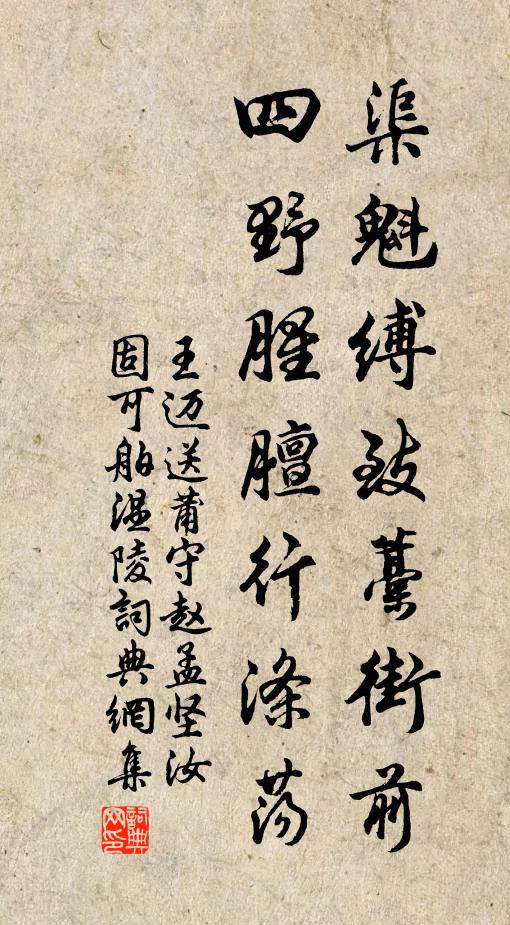 渠魁缚致藁街前
四野腥膻行涤荡
王迈送莆守赵孟坚汝
固可舶温陵詞典網集
詞典网印